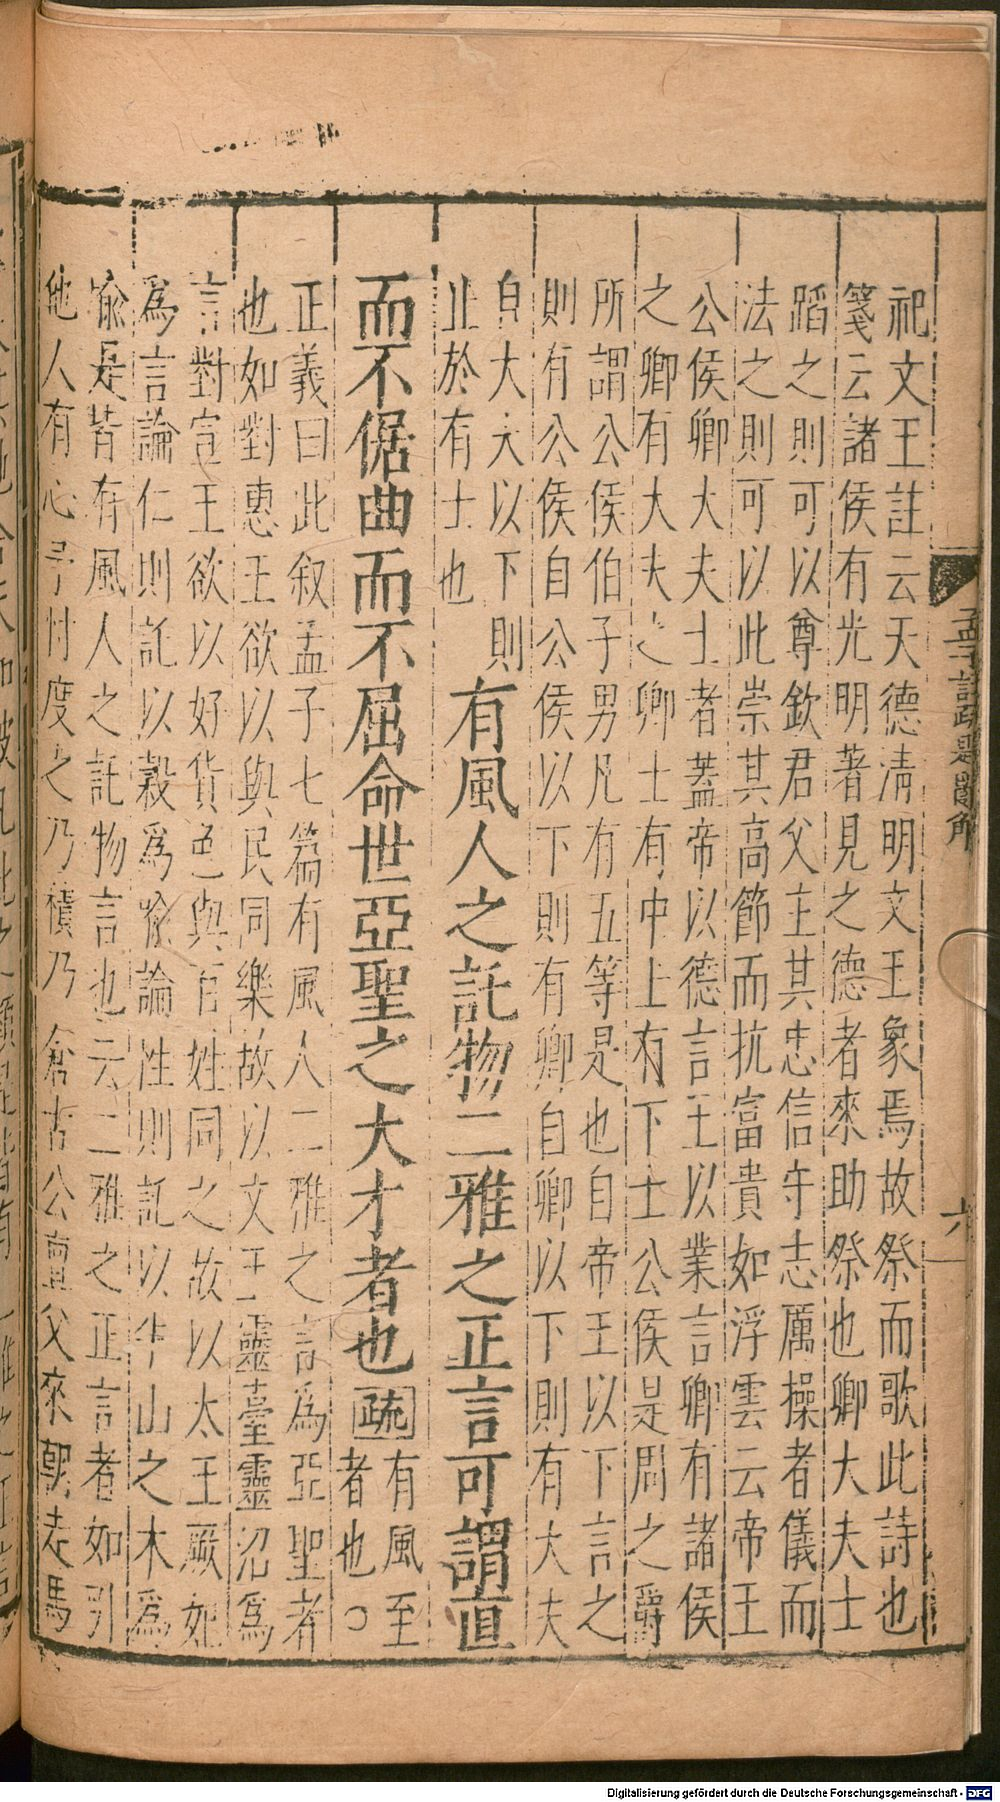 祀文王註云天德清明文王象焉故祭而歌此詩也
箋云諸侯有光明著見之德者來助祭也卿大夫士
蹈之則可以尊欽君父主其忠信守志厲操者儀而
法之則可以此崇其高節而抗富貴如浮雲云帝王
公侯卿大夫士者蓋帝以德言王以業言卿有諸侯
之卿有大夫之卿士有中上有下士公侯是周之爵
所謂公侯伯子男凡有五等是也自帝王以下言之
則有公侯自公侯以下則有卿自卿以下則有大夫
自大夫以下則
止於有士也
有風人之託物二雅之正言可謂直
而不倨曲而不屈命世亞聖之大才者也
疏
有風至
者也○
正義曰此叙孟子七篇有風人二雅之言為亞聖者
也如對惠王欲以與民同樂故以文王靈臺靈沼為
言對宣王欲以好貨色與百姓同之故以太王厥妃
為言論仁則託以穀為喻論性則託以牛山之木為
喻是皆有風人之託物言也云二雅之正言者如引
他人有心予忖度之乃積乃倉古公亶父來朝走馬
孟子註疏題辭解
六
Digitalisierung gefördert durch die Deutsche Forschungsgemeinschaft - DFG